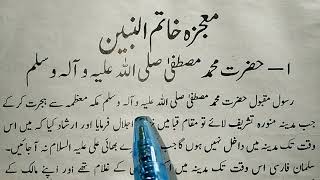 معجزہ خاتم النبین
۱— حضرت محمد مصطفیٰ صلی اللہ علیہ و آلہ وسلم
رسول مقبول حضرت محمد مصطفیٰ صلی اللہ علیہ و آلہ وسلم مکہ معظمہ سے ہجرت کرکے
جب مدینہ منورہ تشریف لائے تو مقام قبا میں اجلال فرمایا اور ارشاد کیا کہ میں اس
وقت تک مدینہ میں داخل نہیں ہوں گا جب بھائی علی علیہ السلام نہ آجائیں۔
سلمان فارسی اس وقت تک مدینہ میں کے غلام تھے اور اپنے مالک کے